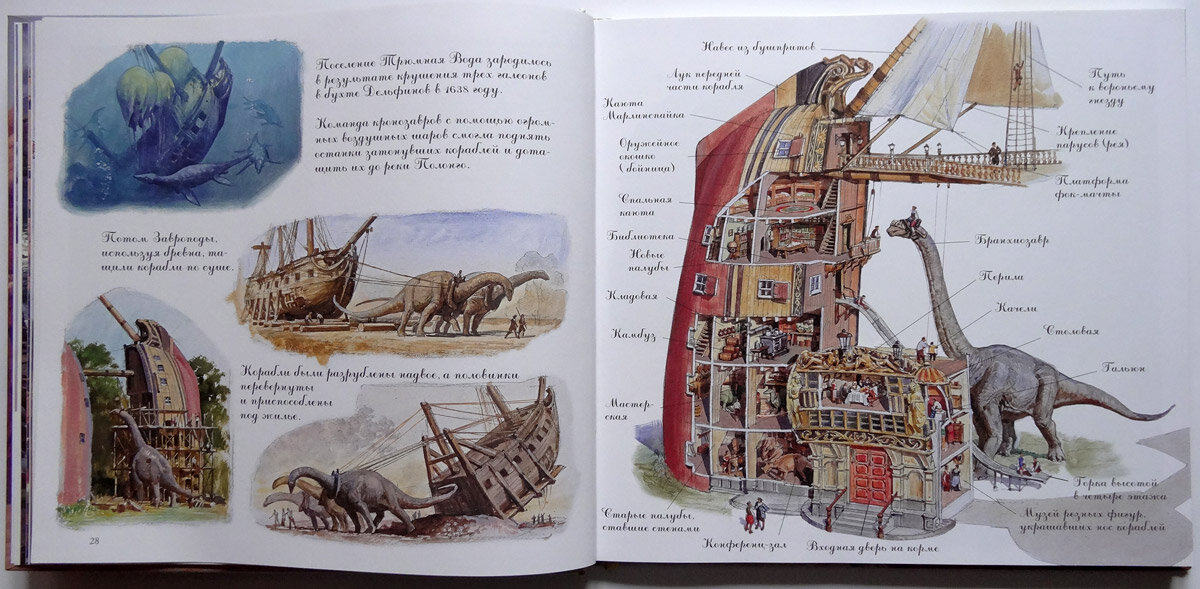 Поселение Трюмная Вода зародилось
в результате крушения трех галеонов
в бухте Дельфинов в 1638 году.
Команда кронозавров с помощью огром-
ных воздушных шаров смогла поднять
останки затонувших кораблей и дота-
щить их до реки Полонго.
Потом Завроподы,
используя бревна, та-
щили корабли по суше.
Корабли были разрублены надвое, а половинки
перевернуты
и приспособлены
под жилье.
28
Навес из бушпритов
Люк передней
части корабля
Каюта
Марлинспайка
Оружейное
окошко
(бойница)
Спальная
каюта
Библиотека
Новые
палубы
Кладовая
Камбуз
Мастер-
ская
Старые палубы,
ставшие стенами
Конференц-зал
Входная дверь на корме
Путь
к вороньему
гнезду
Крепление
парусов (рея)
Платформа
фок-мачты
Бранхиозавр
Перила
Качели
Столовая
Гальюн
Горка высотой
в четыре этажа
Музей резных фигур,
украшавших нос кораблей